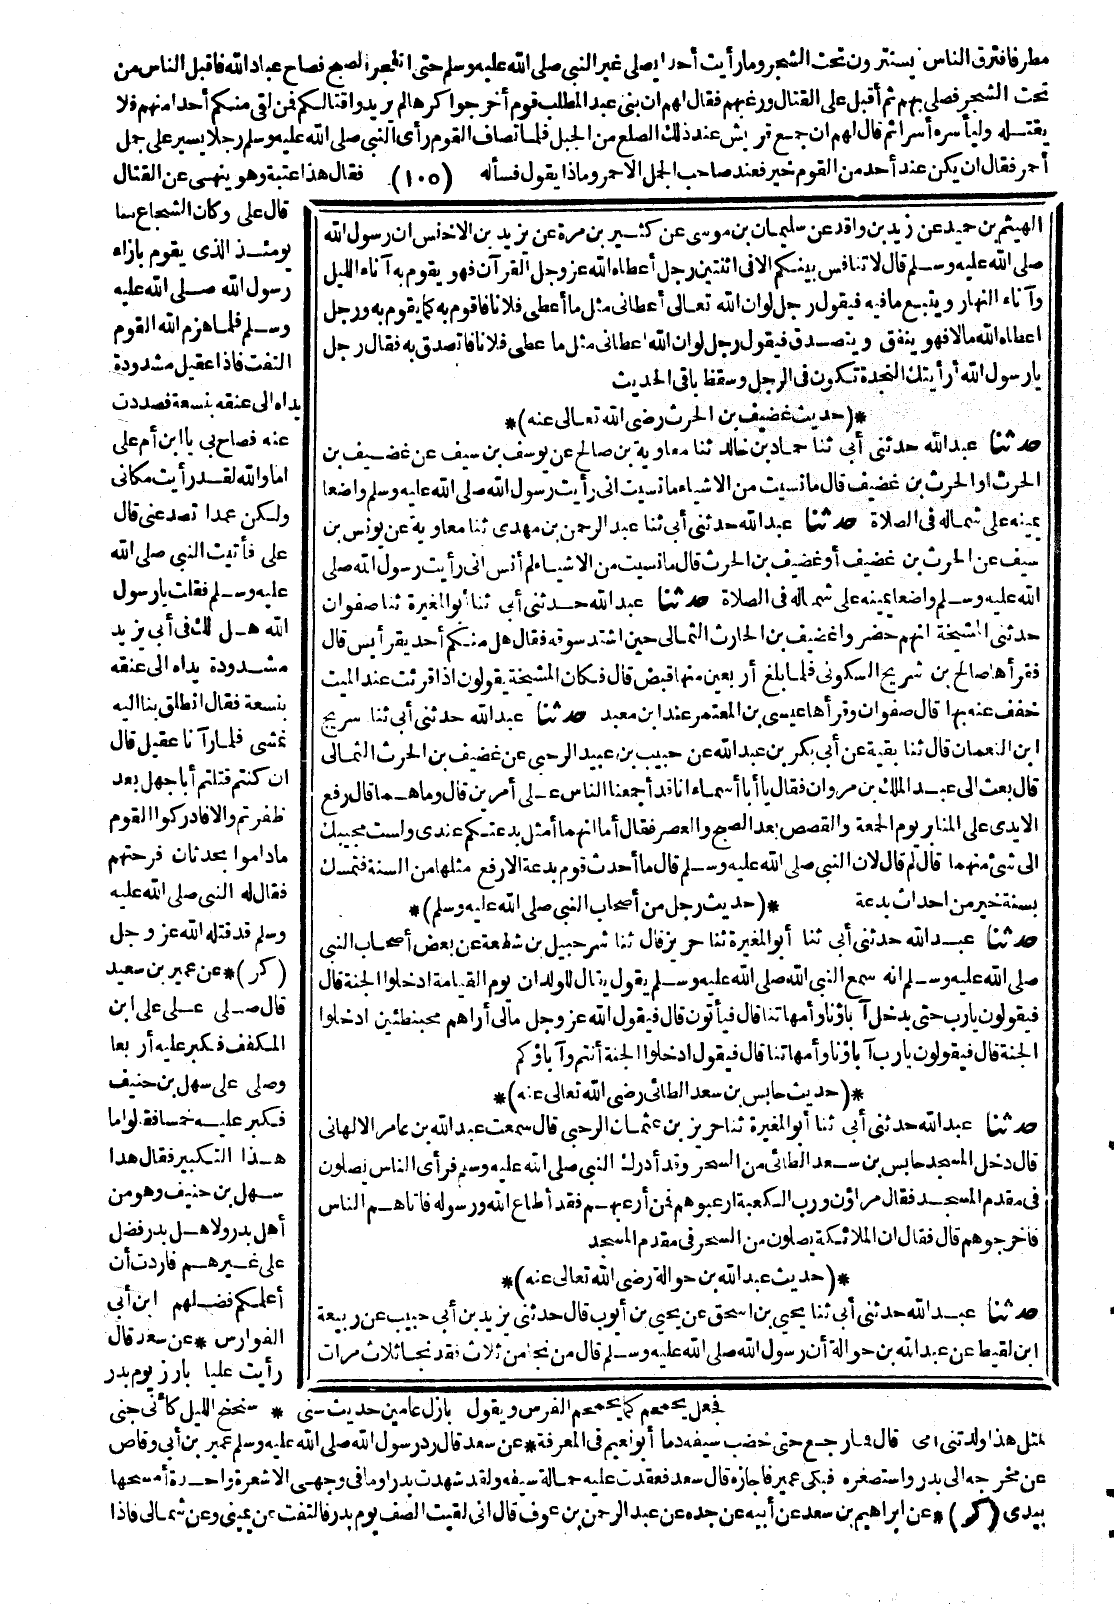 مطر فافترق الناس يستترون تحت الشجر وما رأيت أحدا يصلى غير النبي صلى الله عليه وسلم حتى انفجر الصبح فصاح عباد الله فاقبل الناس من
تحت الشجر فصلى بهم ثم أقبل على القتال ورغبهم فقال لهم ان بنى عبد المطلب قوم أخرجوا كرها لم يريدوا قتالكم فمن لقى منكم أحدا منهم فلا
يقتله وليأسره أسرا ثم قال لهم ان جمع قريش عند ذلك الضلع من الجبل فلما تصاف القوم رأى النبي صلى الله عليه وسلم رجلا يسير على جمل
أحمر فقال ان يكن عند أحد من القوم خير فعند صاحب الجمل الاحمر وماذا يقول فسأله (١٠٥) فقال هذا عتبة وهو ينهى عن القتال
الهيثم بن حميد عن زيد بن واقد عن سليمان بن موسى عن كثير بن مرة عن يزيد بن الاخنس ان رسول الله
صلى الله عليه وسلم قال لا تنافس بينكم الا فى اثنتين رجل أعطاه الله عز وجل القرآن فهو يقوم به آناء الليل
وآناء النهار ويتبع ما فيه فيقول رجل لو ان الله تعالى أعطانى مثل ما أعطى فلانا فاقوم به كما يقوم به ورجل
اعطاه الله مالا فهو ينفق ويتصدق فيقول رجل لو ان الله اعطانى مثل ما عطى فلانا فاتصدق به فقال رجل
يارسول الله أرأيتك النجدة تكون فى الرجل وسقط باقى الحديث
*(حديث غضيف بن الحرث رضى الله تعالى عنه)*
حدثنا عبد الله حدثنى أبى ثنا حماد بن خالد ثنا معاوية بن صالح عن يوسف بن سيف عن غضيف بن
الحرث او الحرث بن غضيف قال ما نسيت من الاشياء ما نسيت انى رأيت رسول الله صلى الله عليه وسلم واضعا
يمينه على شماله فى الصلاة حدثنا عبد الله حدثنى أبى ثنا عبد الرحمن بن مهدى ثنا معاوية عن يونس بن
سيف عن الحرث بن غضيف أو غضيف بن الحرث قال ما نسيت من الاشياء لم أنس انى رأيت رسول الله صلى
الله عليه وسلم واضعا يمينه على شماله فى الصلاة حدثنا عبد الله حدثنى أبى ثنا أبو المغيرة ثنا صفوان
حدثنى المشيخة انهم حضروا غضيف بن الحارث الثمالى حين اشتد سوقه فقال هل منكم أحد يقرأ يس قال
فقرأها صالح بن شريح السكونى فلما بلغ أربعين منها قبض قال فكان المشيخة يقولون اذا قرئت عند الميت
خفف عنه بها قال صفوان وقرأها عيسى بن المعتمر عند ابن معبد حدثنا عبد الله حدثنى أبى ثنا سريج
ابن النعمان قال ثنا بقية عن أبى بكر بن عبد الله عن حبيب بن عبيد الرحبى عن غضيف بن الحرث الثمالى
قال بعث الى عبد الملك بن مروان فقال يا أبا أسماء انا قد أجمعنا الناس على أمرين قال وما هما قال رفع
الايدى على المنابر يوم الجمعة والقصص بعد الصبح والعصر فقال أما انهما أمثل بدعتكم عندى ولست مجيبك
الى شئ منهما قال لم قال لان النبي صلى الله عليه وسلم قال ما أحدث قوم بدعة الا رفع مثلها من السنة فتمسك
بسنة خير من احداث بدعة *(حديث رجل من أصحاب النبي صلى الله عليه وسلم)*
حدثنا عبد الله حدثنى أبى ثنا أبو المغيرة ثنا حريز قال ثنا شرحبيل بن شفعة عن بعض أصحاب النبي
صلى الله عليه وسلم انه سمع النبي الله صلى الله عليه وسلم يقول يقال للولدان يوم القيامة ادخلوا الجنة قال
فيقولون يارب حتى يدخل آباؤنا وأمهاتنا قال فيأتون قال فيقول الله عز وجل مالى أراهم محبنطئين ادخلوا
الجنة قال فيقولون يارب آباؤنا وأمهاتنا قال فيقول ادخلوا الجنة أنتم وآباؤكم
*(حديث حابس بن سعد الطائى رضى الله تعالى عنه)*
حدثنا عبد الله حدثنى أبى ثنا أبو المغيرة ثنا حريز بن عثمان الرحبى قال سمعت عبد الله بن عامر الالهانى
قال دخل المسجد حابس بن سعد الطائى من السحر وقد أدرك النبي صلى الله عليه وسلم فرأى الناس يصلون
فى مقدم المسجد فقال مراؤن ورب الكعبة ارعبوهم فمن أرعبهم فقد أطاع الله ورسوله فاتاهم الناس
فاخرجوهم قال فقال ان الملائكة يصلون من السحر فى مقدم المسجد
*(حديث عبد الله بن حوالة رضى الله تعالى عنه)*
حدثنا عبد الله حدثنى أبى ثنا يحيى بن اسحق عن يحيى بن أيوب قال حدثنى يزيد بن أبى حبيب عن ربيعة
ابن لقيط عن عبد الله بن حوالة أن رسول الله صلى الله عليه وسلم قال من نجا من ثلاث فقد نجا ثلاث مرات
قال على وكان الشجاع منا
يومئذ الذى يقوم بازاء
رسول الله صلى الله عليه
وسلم فلما هزم الله القوم
التفت فاذا عقيل مشدودة
يداه الى عنقه بنسعة فصددت
عنه فصاح بى يا ابن أم على
اما والله لقد رأيت مكانى
ولكن عمدا تصد عنى قال
على فأتيت النبي صلى الله
عليه وسلم فقلت يارسول
الله هل لك فى أبى يزيد
مشدودة يداه الى عنقه
بنسعة فقال انطلق بنا اليه
نمشى فلما رآنا عقيل قال
ان كنتم قتلتم أبا جهل بعد
ظفرتم والا فادركوا القوم
ماداموا بحدثان فرحتهم
فقال له النبي صلى الله عليه
وسلم قد قتله الله عز وجل
(كر) * عن عمير بن سعيد
قال صلى على على ابن
المكفف فكبر عليه أربعا
وصلى على سهل بن حنيف
فكبر عليه خمسا فقالوا ما
هذا التكبير فقال هذا
سهل بن حنيف وهو من
أهل بدر ولاهل بدر فضل
على غيرهم فاردت أن
أعلمكم فضلهم ابن أبى
الفوارس * عن سعد قال
رأيت عليا بارز يوم بدر
فجعل يحمحم كما يحمحم الفرس ويقول بازل عامين حديث سنى * سنحنح الليل كأنى جنى
لمثل هذا ولدتنى امى قال فما رجع حتى خضب سيفه دما أبو نعيم فى المعرفة * عن سعد قال رد رسول الله صلى الله عليه وسلم عمير بن أبى وقاص
عن مخرجه الى بدر واستصغره فبكى عمير فاجازه قال سعد فعقدت عليه حمالة سيفه ولقد شهدت بدرا وما فى وجهى الا شعرة واحدة أمسحها
بيدى (كر) * عن ابراهيم بن سعد عن أبيه عن جده عن عبد الرحمن بن عوف قال انى لفيت الصف يوم بدر فالتفت عن يمينى وعن شمالى فاذا